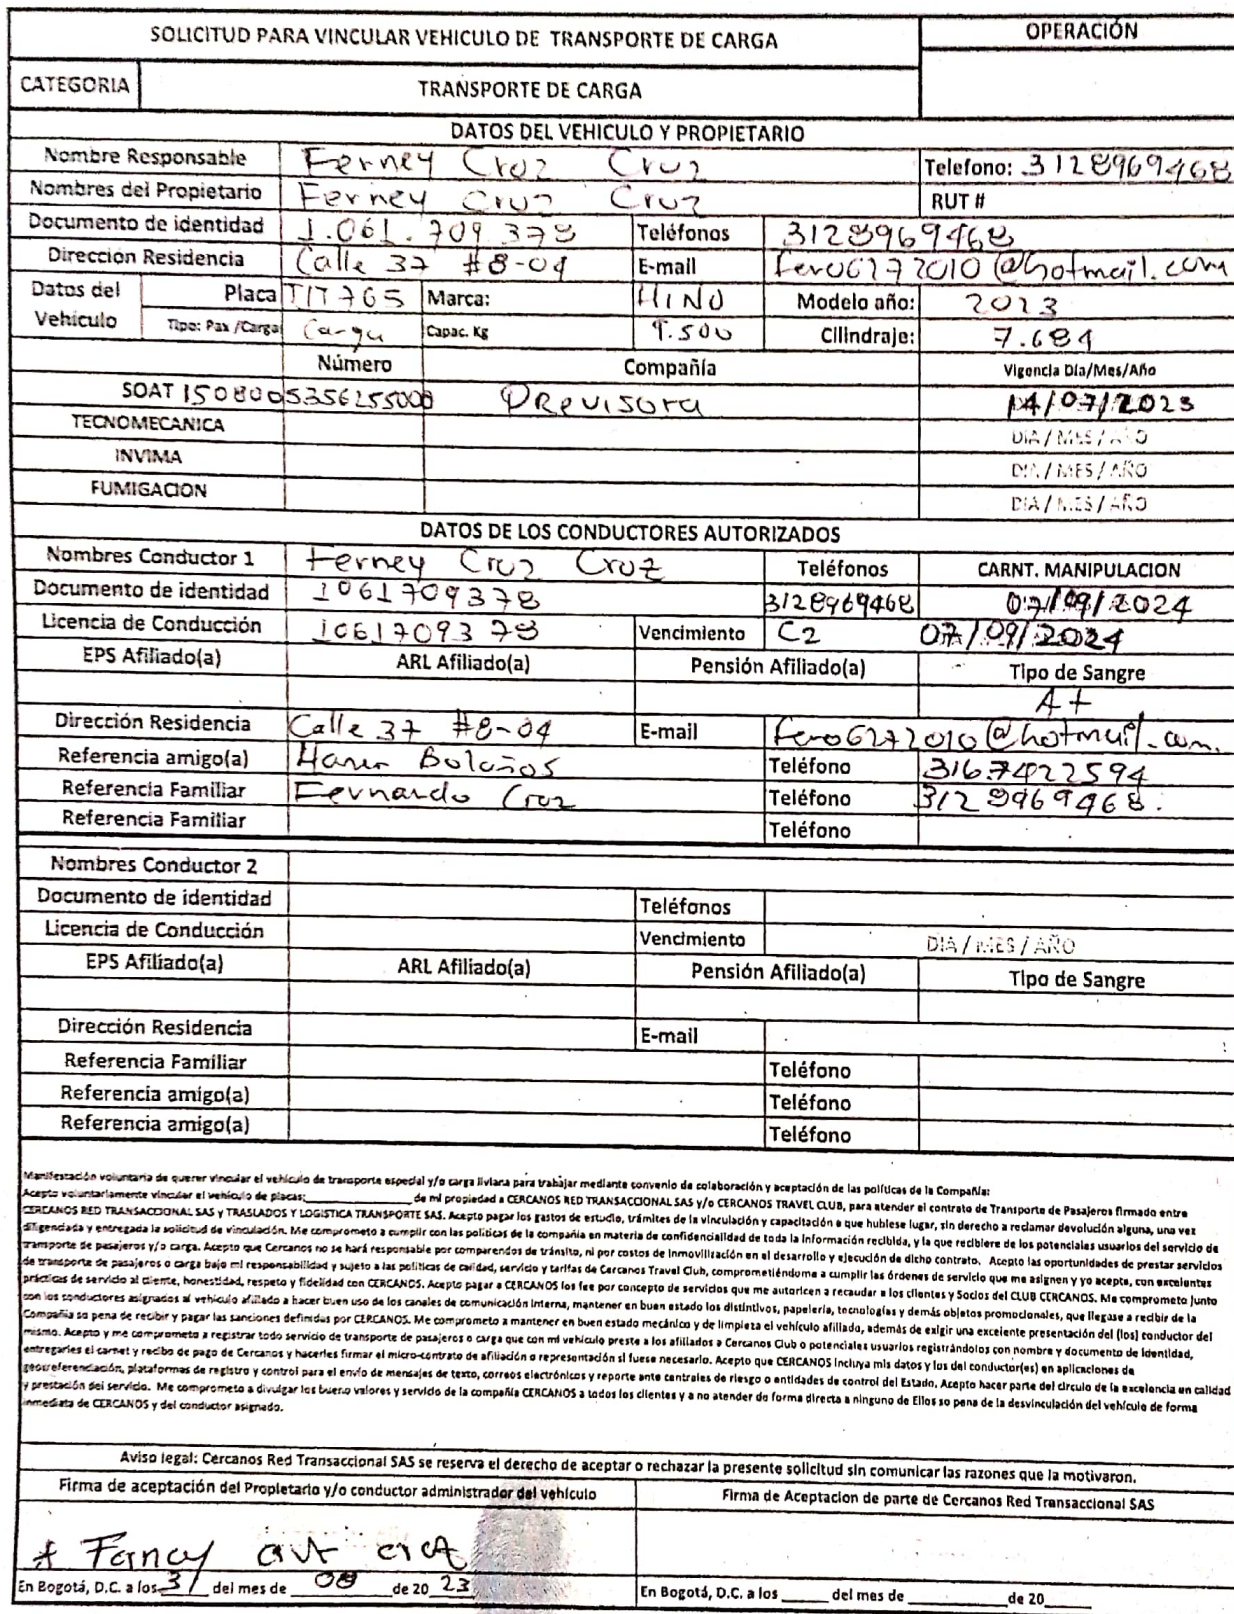 SOLICITUD PARA VINCULAR VEHICULO DE TRANSPORTE DE CARGA
OPERACIÓN
CATEGORIA TRANSPORTE DE CARGA
DATOS DEL VEHICULO Y PROPIETARIO
Nombre Responsable Ferney Cruz Cruz Telefono: 3128969468
Nombres del Propietario Ferney Cruz Cruz RUT #
Documento de identidad 1.061.709378 Teléfonos 3128969468
Dirección Residencia Calle 37 #8-04 E-mail fero6272010@hotmail.com
Datos del Vehículo Placa TIT765 Marca: HINO Modelo año: 2023
Tipo: Pax /Carga Carga Capac. Kg 9.500 Cilindraje: 7.684
Número Compañía Vigencia Día/Mes/Año
SOAT 1508005356255000 Previsora 14/07/2023
TECNOMECANICA DIA / MES / AÑO
INVIMA DIA / MES / AÑO
FUMIGACION DIA / MES / AÑO
DATOS DE LOS CONDUCTORES AUTORIZADOS
Nombres Conductor 1 Ferney Cruz Cruz Teléfonos CARNT. MANIPULACION
Documento de identidad 1061709378 3128969468 07/09/2024
Licencia de Conducción 1061709378 Vencimiento C2 07/09/2024
EPS Afiliado(a) ARL Afiliado(a) Pensión Afiliado(a) Tipo de Sangre
A+
Dirección Residencia Calle 37 #8-04 E-mail fero6272010@hotmail.com.
Referencia amigo(a) Bolaños Teléfono 3167422594
Referencia Familiar Fernando Cruz Teléfono 3128969468.
Referencia Familiar Teléfono
Nombres Conductor 2
Documento de identidad Teléfonos
Licencia de Conducción Vencimiento DIA / MES / AÑO
EPS Afiliado(a) ARL Afiliado(a) Pensión Afiliado(a) Tipo de Sangre
Dirección Residencia E-mail
Referencia Familiar Teléfono
Referencia amigo(a) Teléfono
Referencia amigo(a) Teléfono
Manifestación voluntaria de querer vincular el vehículo de transporte especial y/o carga liviana para trabajar mediante convenio de colaboración y aceptación de las políticas de la Compañía:
Acepto voluntariamente vincular el vehículo de placas:____________ de mi propiedad a CERCANOS RED TRANSACCIONAL SAS y/o CERCANOS TRAVEL CLUB, para atender el contrato de Transporte de Pasajeros firmado entre
CERCANOS RED TRANSACCIONAL SAS y TRASLADOS Y LOGISTICA TRANSPORTE SAS. Acepto pagar los gastos de estudio, trámites de la vinculación y capacitación a que hubiese lugar, sin derecho a reclamar devolución alguna, una vez
diligenciada y entregada la solicitud de vinculación. Me comprometo a cumplir con las políticas de la compañía en materia de confidencialidad de toda la información recibida, y la que recibiere de los potenciales usuarios del servicio de
transporte de pasajeros y/o carga. Acepto que Cercanos no se hará responsable por comparendos de tránsito, ni por costos de inmovilización en el desarrollo y ejecución de dicho contrato. Acepto las oportunidades de prestar servicios
de transporte de pasajeros o carga bajo mi responsabilidad y sujeto a las políticas de calidad, servicio y tarifas de Cercanos Travel Club, comprometiéndome a cumplir las órdenes de servicio que me asignen y yo acepte, con excelentes
prácticas de servicio al cliente, honestidad, respeto y fidelidad con CERCANOS. Acepto pagar a CERCANOS los fee por concepto de servicios que me autoricen a recaudar a los clientes y Socios del CLUB CERCANOS. Me comprometo junto
con los conductores asignados al vehículo afiliado a hacer buen uso de los canales de comunicación interna, mantener en buen estado los distintivos, papelería, tecnologías y demás objetos promocionales, que llegase a recibir de la
Compañía so pena de recibir y pagar las sanciones definidas por CERCANOS. Me comprometo a mantener en buen estado mecánico y de limpieza el vehículo afiliado, además de exigir una excelente presentación del (los) conductor del
mismo. Acepto y me comprometo a registrar todo servicio de transporte de pasajeros o carga que con mi vehículo preste a los afiliados a Cercanos Club o potenciales usuarios registrándolos con nombre y documento de identidad,
entregarles el carnet y recibo de pago de Cercanos y hacerles firmar el micro-contrato de afiliación o representación si fuese necesario. Acepto que CERCANOS incluya mis datos y los del conductor(es) en aplicaciones de
georeferenciación, plataformas de registro y control para el envío de mensajes de texto, correos electrónicos y reporte ante centrales de riesgo o entidades de control del Estado. Acepto hacer parte del circulo de la excelencia en calidad
y prestación del servicio. Me comprometo a divulgar los bueno valores y servicio de la compañía CERCANOS a todos los clientes y a no atender de forma directa a ninguno de Ellos so pena de la desvinculación del vehículo de forma
inmediata de CERCANOS y del conductor asignado.
Aviso legal: Cercanos Red Transaccional SAS se reserva el derecho de aceptar o rechazar la presente solicitud sin comunicar las razones que la motivaron.
Firma de aceptación del Propietario y/o conductor administrador del vehículo Firma de Aceptacion de parte de Cercanos Red Transaccional SAS
En Bogotá, D.C. a los 31 del mes de 08 de 20 23 En Bogotá, D.C. a los ______ del mes de __________ de 20______